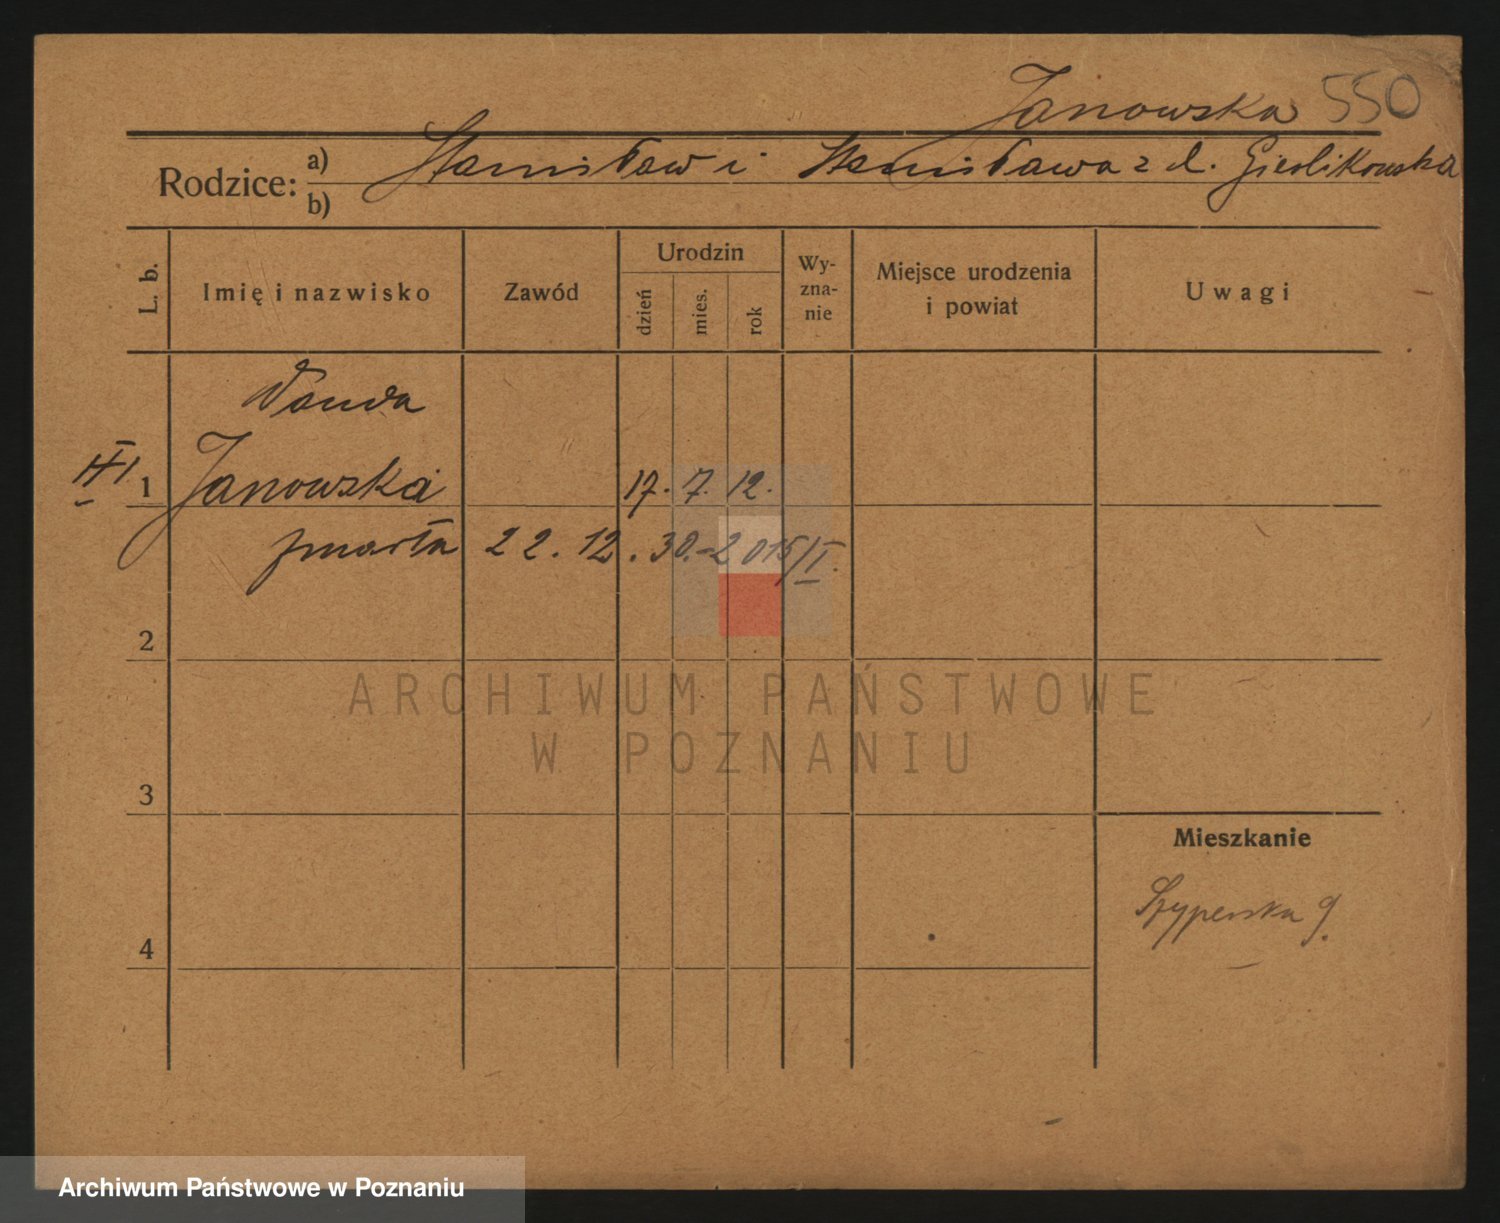 Janowska 550
Rodzice: a) Stanisław i Stanisława z d.
b)
L. b.
Imię i nazwisko
Zawód
Urodzin
dzień
mies.
rok
Wy-
zna-
nie
Miejsce urodzenia
i powiat
Uwagi
Wanda
1 Janowska 17. 7. 12.
zmarła 22. 12. 30. - 2015/II.
2
ARCHIWUM PAŃSTWOWE
W POZNANIU
3
Mieszkanie
Szyperska 9.
4
Archiwum Państwowe w Poznaniu